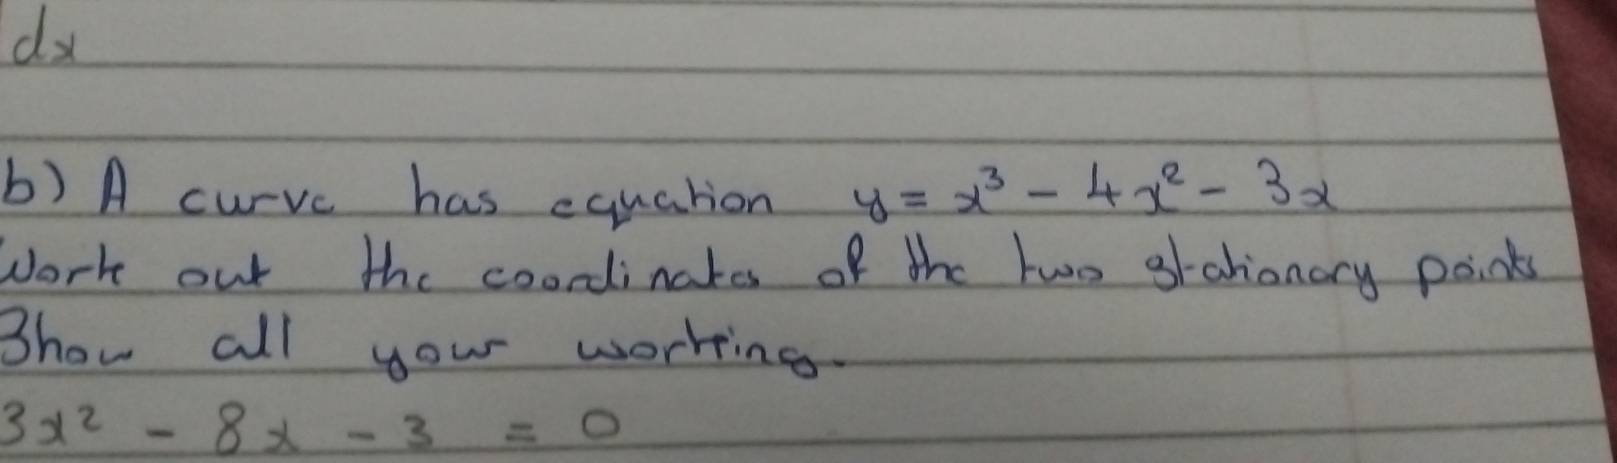 dx
b) A curve has equation y = x³ - 4x² - 3x
Work out the coordinates of the two stationary points
Show all your working.
3x² - 8x - 3 = 0